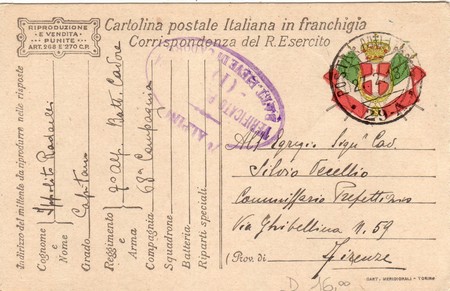 RIPRODUZIONE
E VENDITA
PUNITE
ART. 268 E 270 C.P.
Cartolina postale Italiana in franchigia
Corrispondenza del R. Esercito
POSTA
29 A
VERIFICATO
ALPINI
Indirizzo del mittente da riprodurre nelle risposte
Cognome e Nome Ippolito Radaelli
Grado Capitano
Reggimento e Arma 7° Alp. Batt. Cadore
Compagnia 68ª Compagnia
Squadrone
Batteria
Riparti speciali
All' Egregio Sigr Cav.
Silvio Vecellio
Commissario Prefettizio
Via Ghibellina N. 59
Firenze
(Prov. di )
CART. MERIDIONALI - TORINO
D 16,00